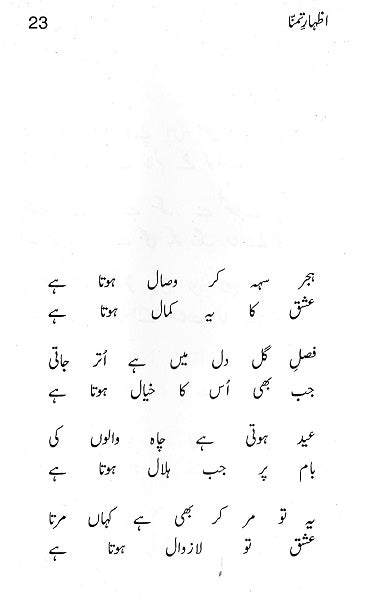 اظہارِ تمنّا 23
ہجر سہہ کر وصال ہوتا ہے
عشق کا یہ کمال ہوتا ہے
فصلِ گل دل میں ہے اُتر جاتی
جب بھی اُس کا خیال ہوتا ہے
عید ہوتی ہے چاہ والوں کی
بام پر جب ہلال ہوتا ہے
یہ تو مر کر بھی ہے کہاں مرتا
عشق تو لازوال ہوتا ہے